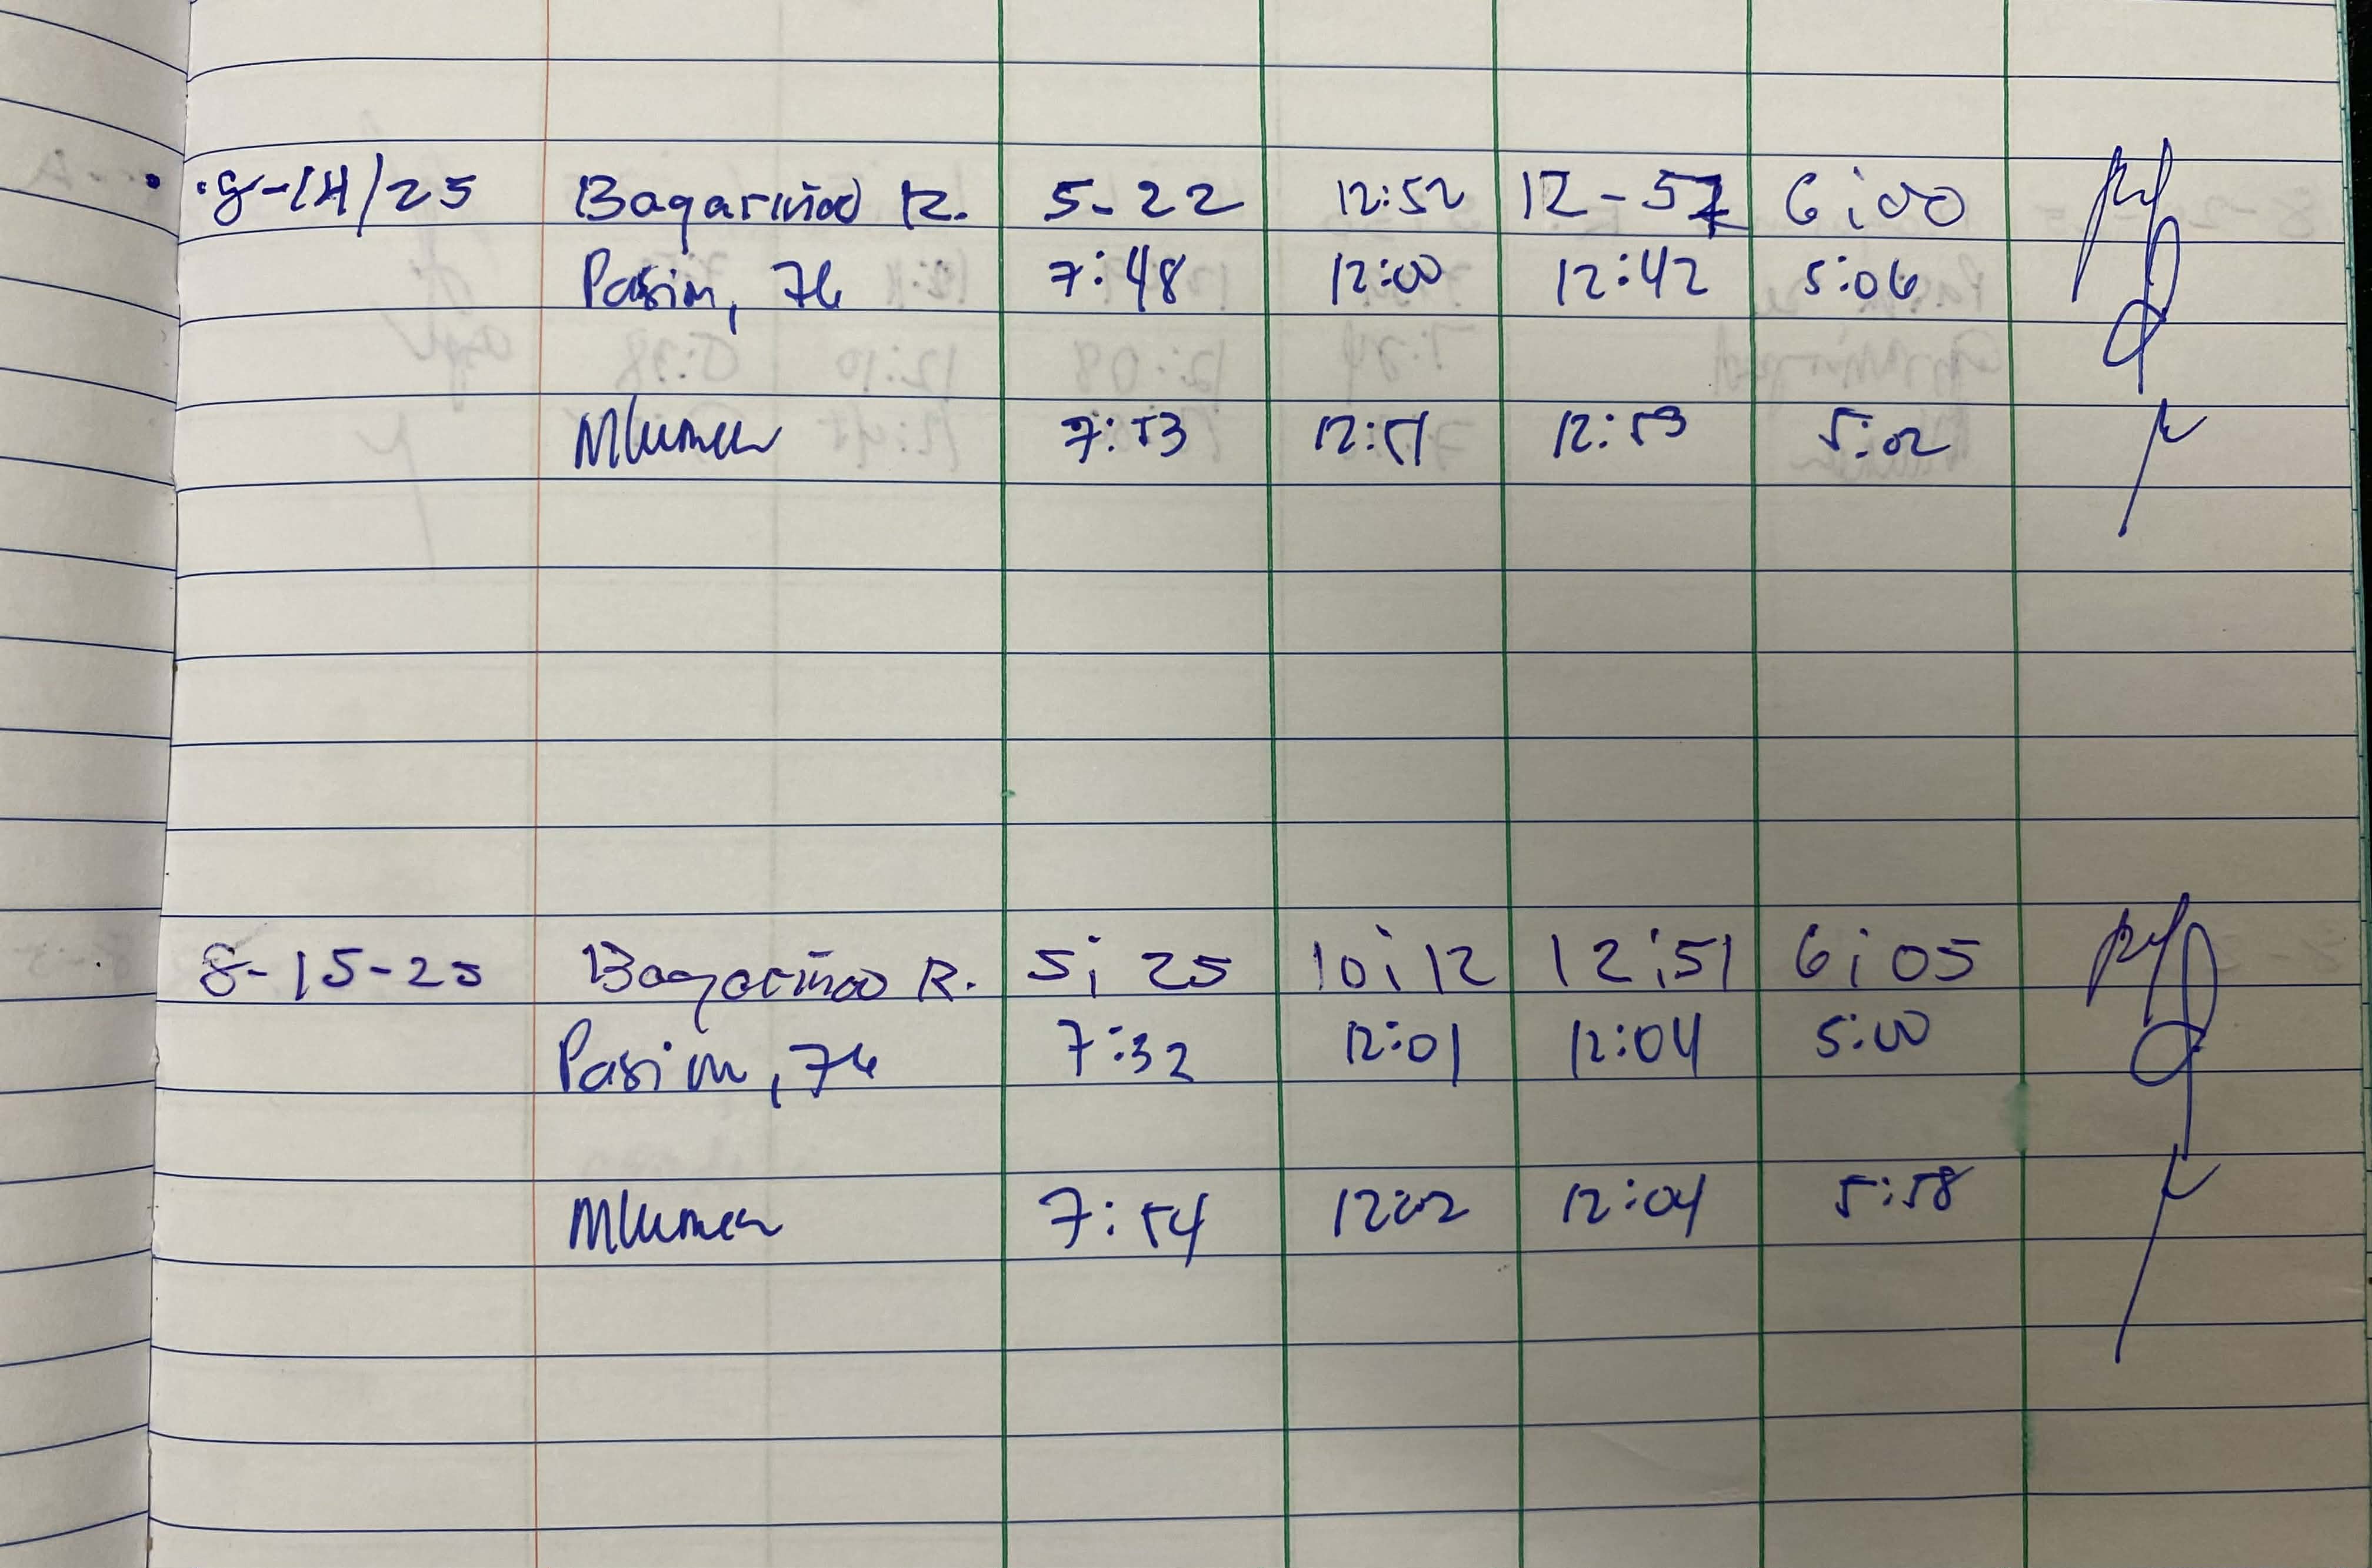 8-14/25 Bagariñao R. 5-22 12:52 12-57 6:00
Pasion, 76 7:48 12:00 12:42 5:06
7:53 12:51 12:53 5:02
8-15-25 Bagariñao R. 5:25 10:12 12:51 6:05
7:32 12:01 12:04 5:00
7:54 12:02 12:04 5:58